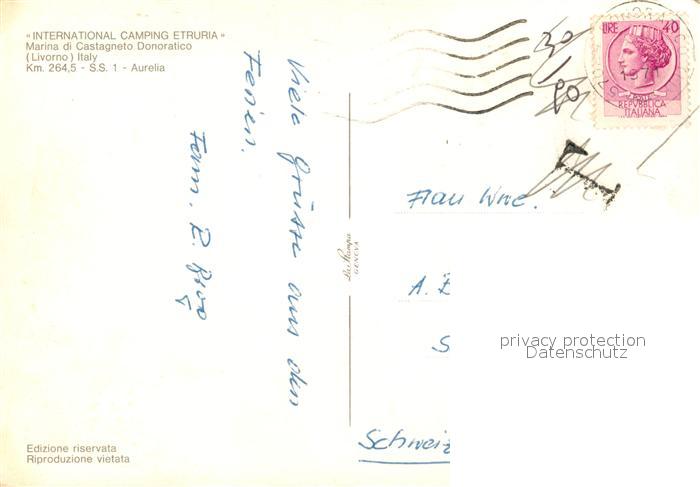 «INTERNATIONAL CAMPING ETRURIA»
Marina di Castagneto Donoratico
(Livorno) Italy
Km. 264,5 - S.S. 1 - Aurelia
Viele Grüsse aus den
Ferien.
Fam. E.
La Stampa
GENOVA
LIRE 40
REPVBBLICA
ITALIANA
30
T
Frau Wwe.
A.
S
Schweiz
privacy protection
Datenschutz
Edizione riservata
Riproduzione vietata